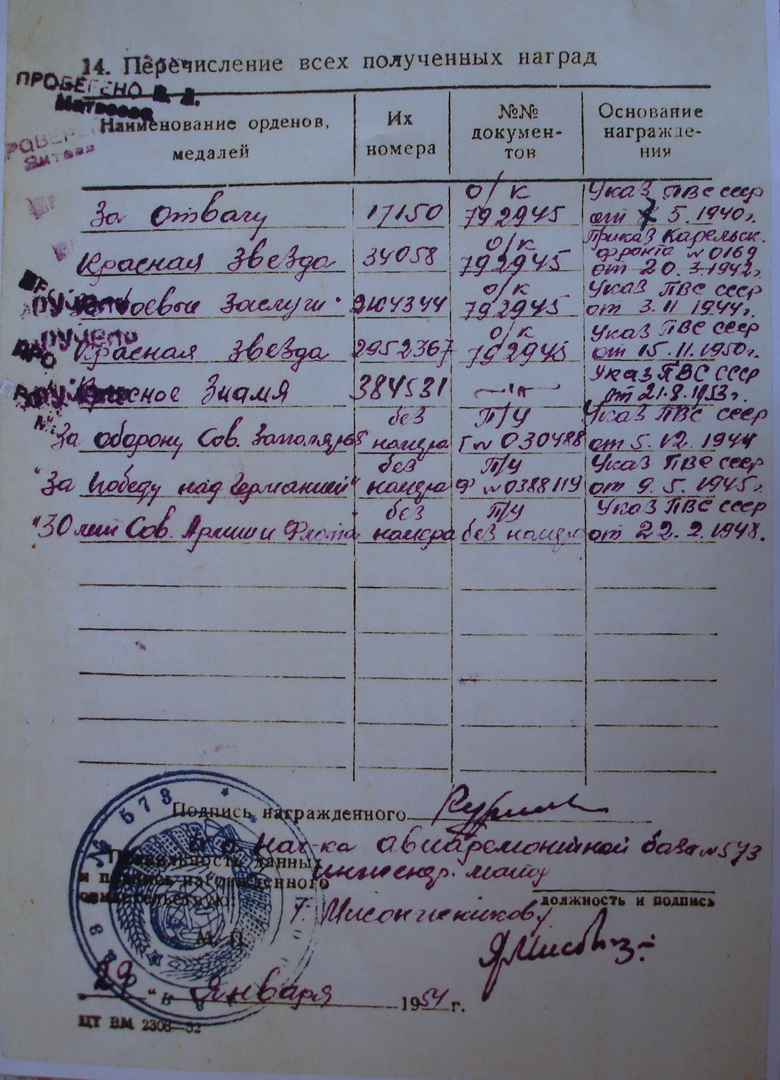 14. Перечисление всех полученных наград
ПРОВЕРЕНО
Наименование орденов, медалей
Их номера
№№ документов
Основание награждения
За отвагу 17150 о/к 792945 Указ ПВС СССР от 7 5.1940г.
Красная Звезда 34058 о/к 792945 Приказ Карельск. фронта №0169 от 20.3.1942г.
боевые Заслуги 2104344 о/к 792945 Указ ПВС СССР от 3.11.1944г.
Красная Звезда 2952367 о/к 792945 Указ ПВС СССР от 15.11.1950г.
Красное Знамя 384531 —"— Указ ПВС СССР от 21.8.1953г.
"За оборону Сов. Заполярья" без номера П/У Г №030488 Указ ПВС СССР от 5.12.1944
"За победу над Германией" без номера П/У Ф №0388119 Указ ПВС СССР от 9.5.1945г.
"30 лет Сов. Армии и Флота" без номера П/У без номера Указ ПВС СССР от 22.2.1948.
Подпись награжденного
нач-ка авиаремонтной база №573
Правильность данных
инженер. майор
и подпись награжденного
свидетельствую:
должность и подпись
М. П.
29 Января 1954 г.
ЦТ ВМ 2308—52
№ 573